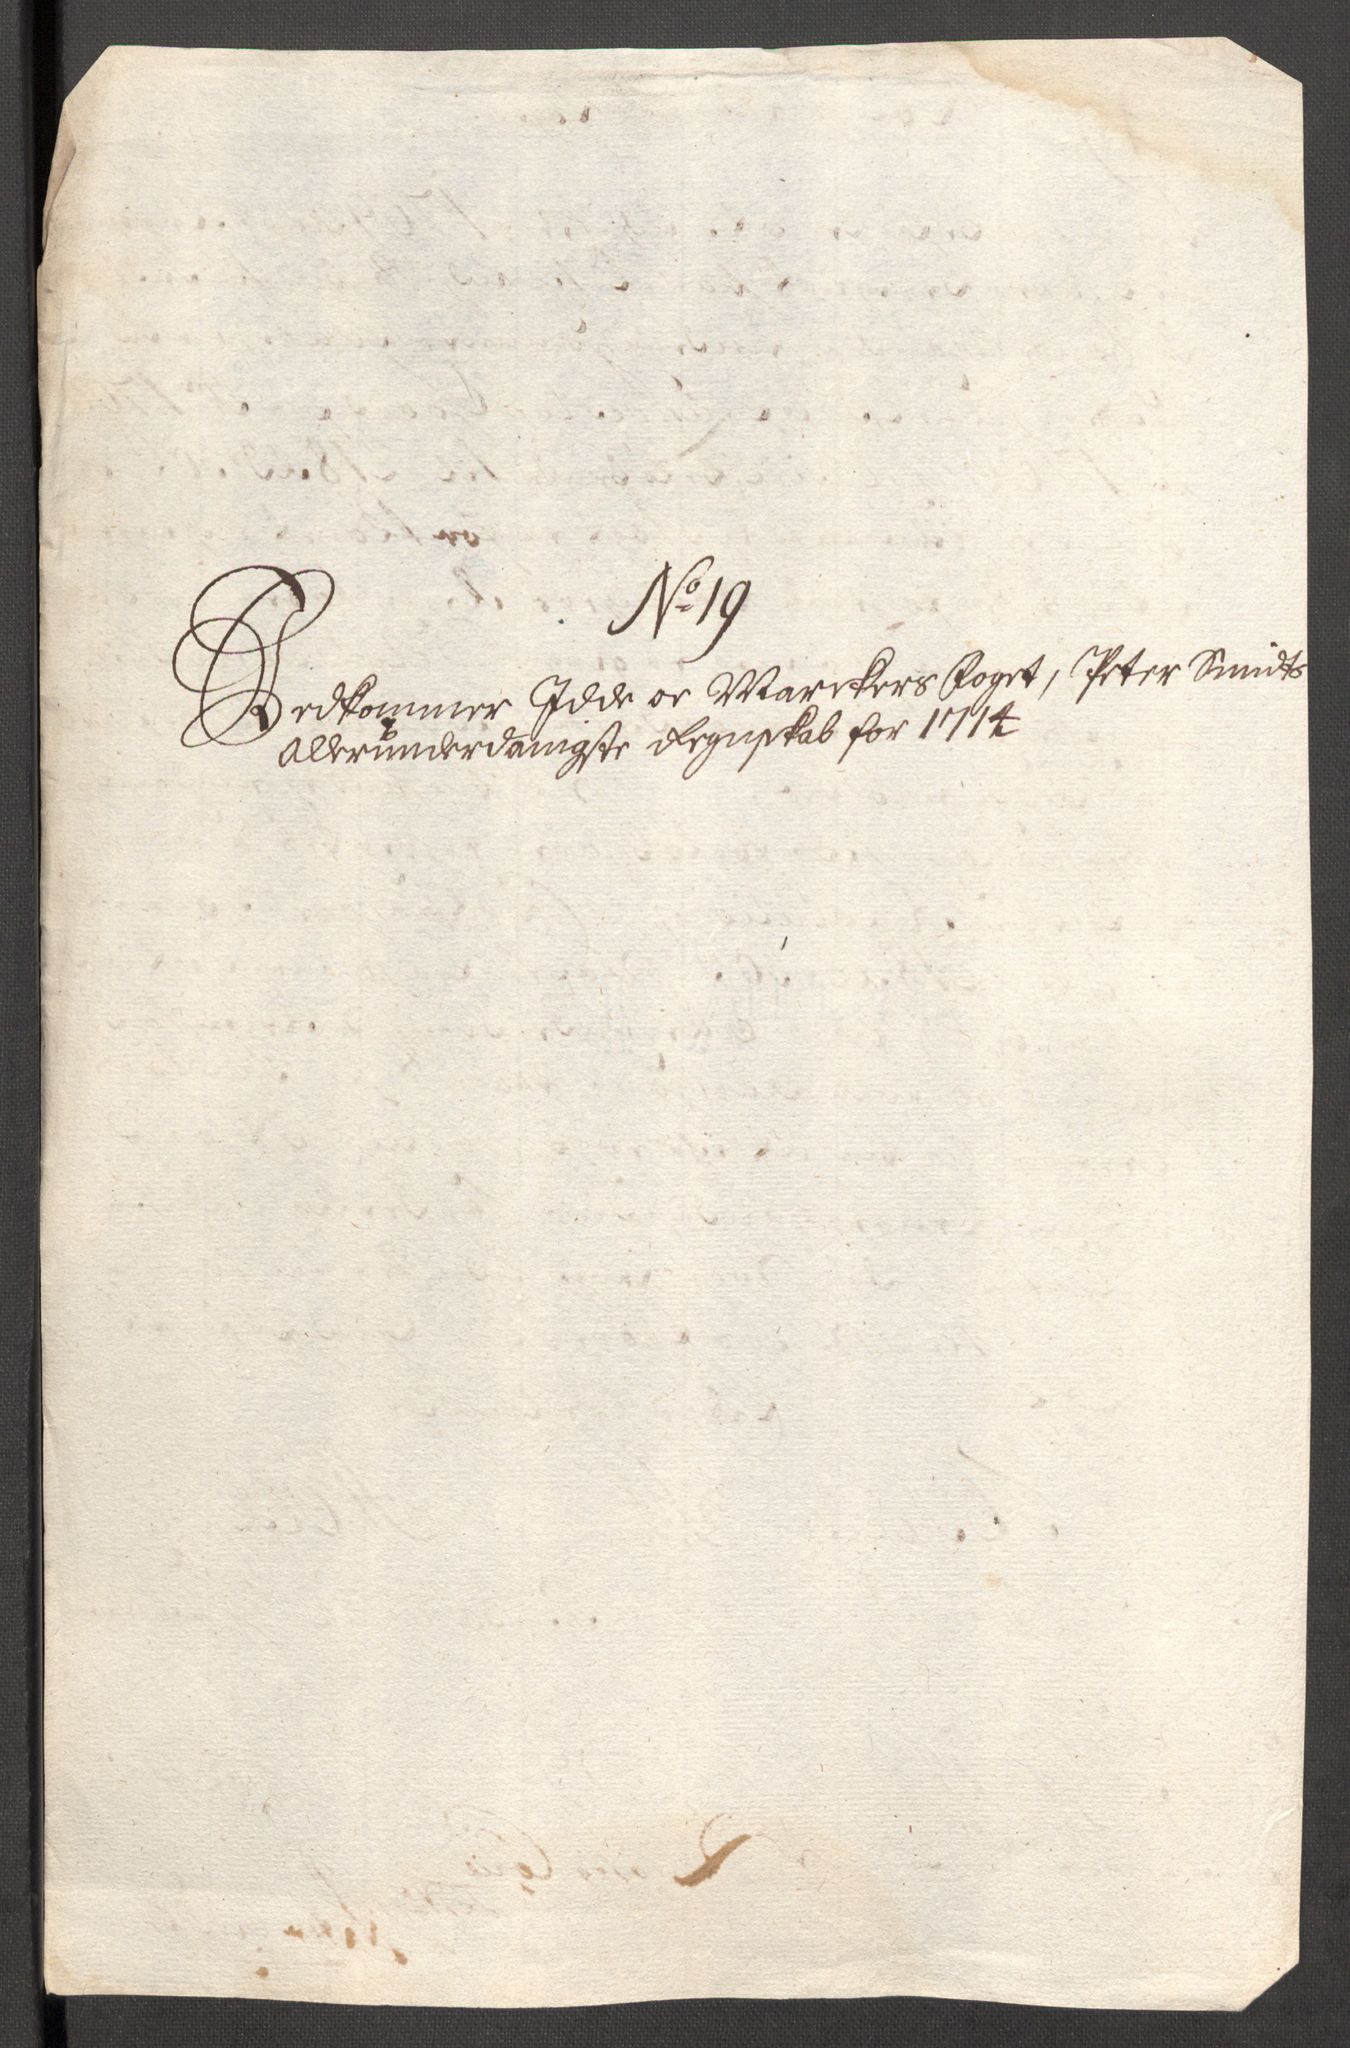 No 19
Vedkommer Idde oc Marckers Foget, Peter Smidts
alleründerdanigste Regnskab for 1714